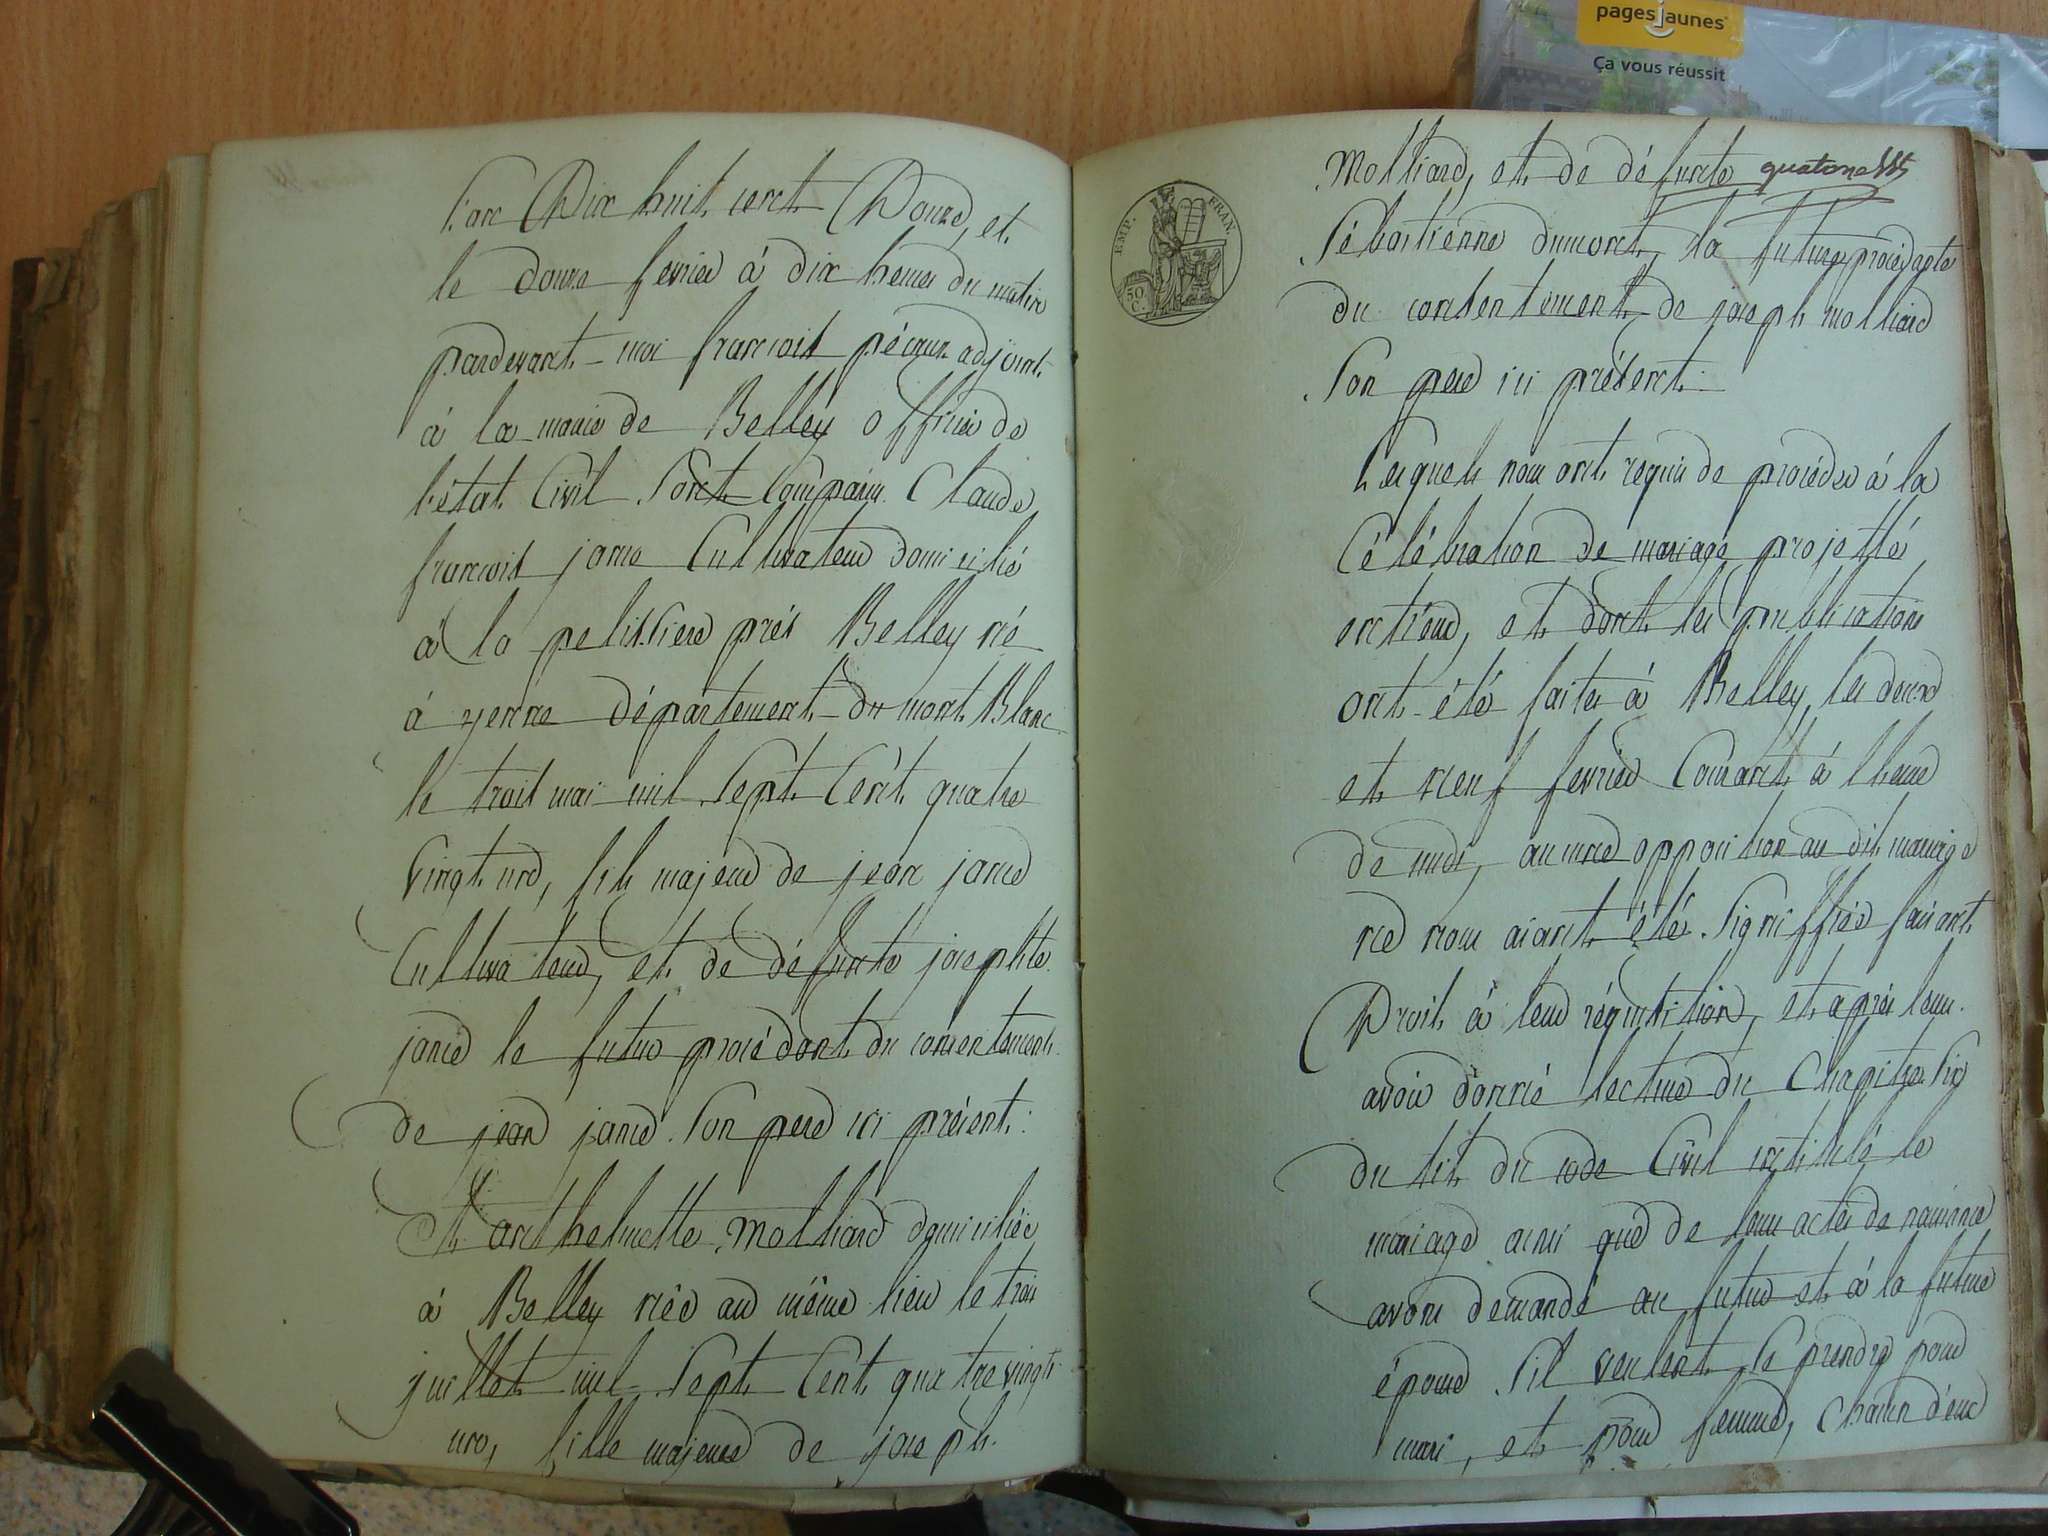 pagesjaunes
Ça vous réussit
L'an Dix huit cent Douze, et
le douze fevrier à dix heures du matin
pardevant moi francois pécaux adjoint
à la mairie de Belley officier de
l'état Civil Sont Comparus Claude
francois jance Cultivateur domicilié
à la pelissiere près Belley né
à yenne département du mont Blanc
le trois mai mil Sept Cent quatre
vingt un, fils majeur de jean jance
Cultivateur, et de défuncte josephte
jance le futur procédant du consentement
de jean jance Son pere ici présent :
Et anthelmette Molliard domiciliée
à Belley née au même lieu le trois
juillet mil Sept Cent quatre vingt
un, fille majeure de joseph
EMP. FRAN.
50 C.
Molliard, et de défuncte quatorze
Sébastienne dumont, la future procédante
du consentement de joseph molliard
Son pere ici présent.
Lesquels nous ont requis de procéder à la
Célébration de mariage projetté
entr'eux, et dont les publications
ont été faites à Belley, les deux
et neuf fevrier Courant à l'heure
de midi, aucune opposition au dit mariage
ne nous aiant été Signiffiée faisant
Droit à leur réquisition, et après leur
avoir donné lecture du Chapitre Six
du tit. du code Civil intitulé le
mariage ainsi que de leurs actes de naissance
avons demandé au futur et à la future
épouse S'il veulent Se prendre pour
mari, et pour femme, chacun d'eux